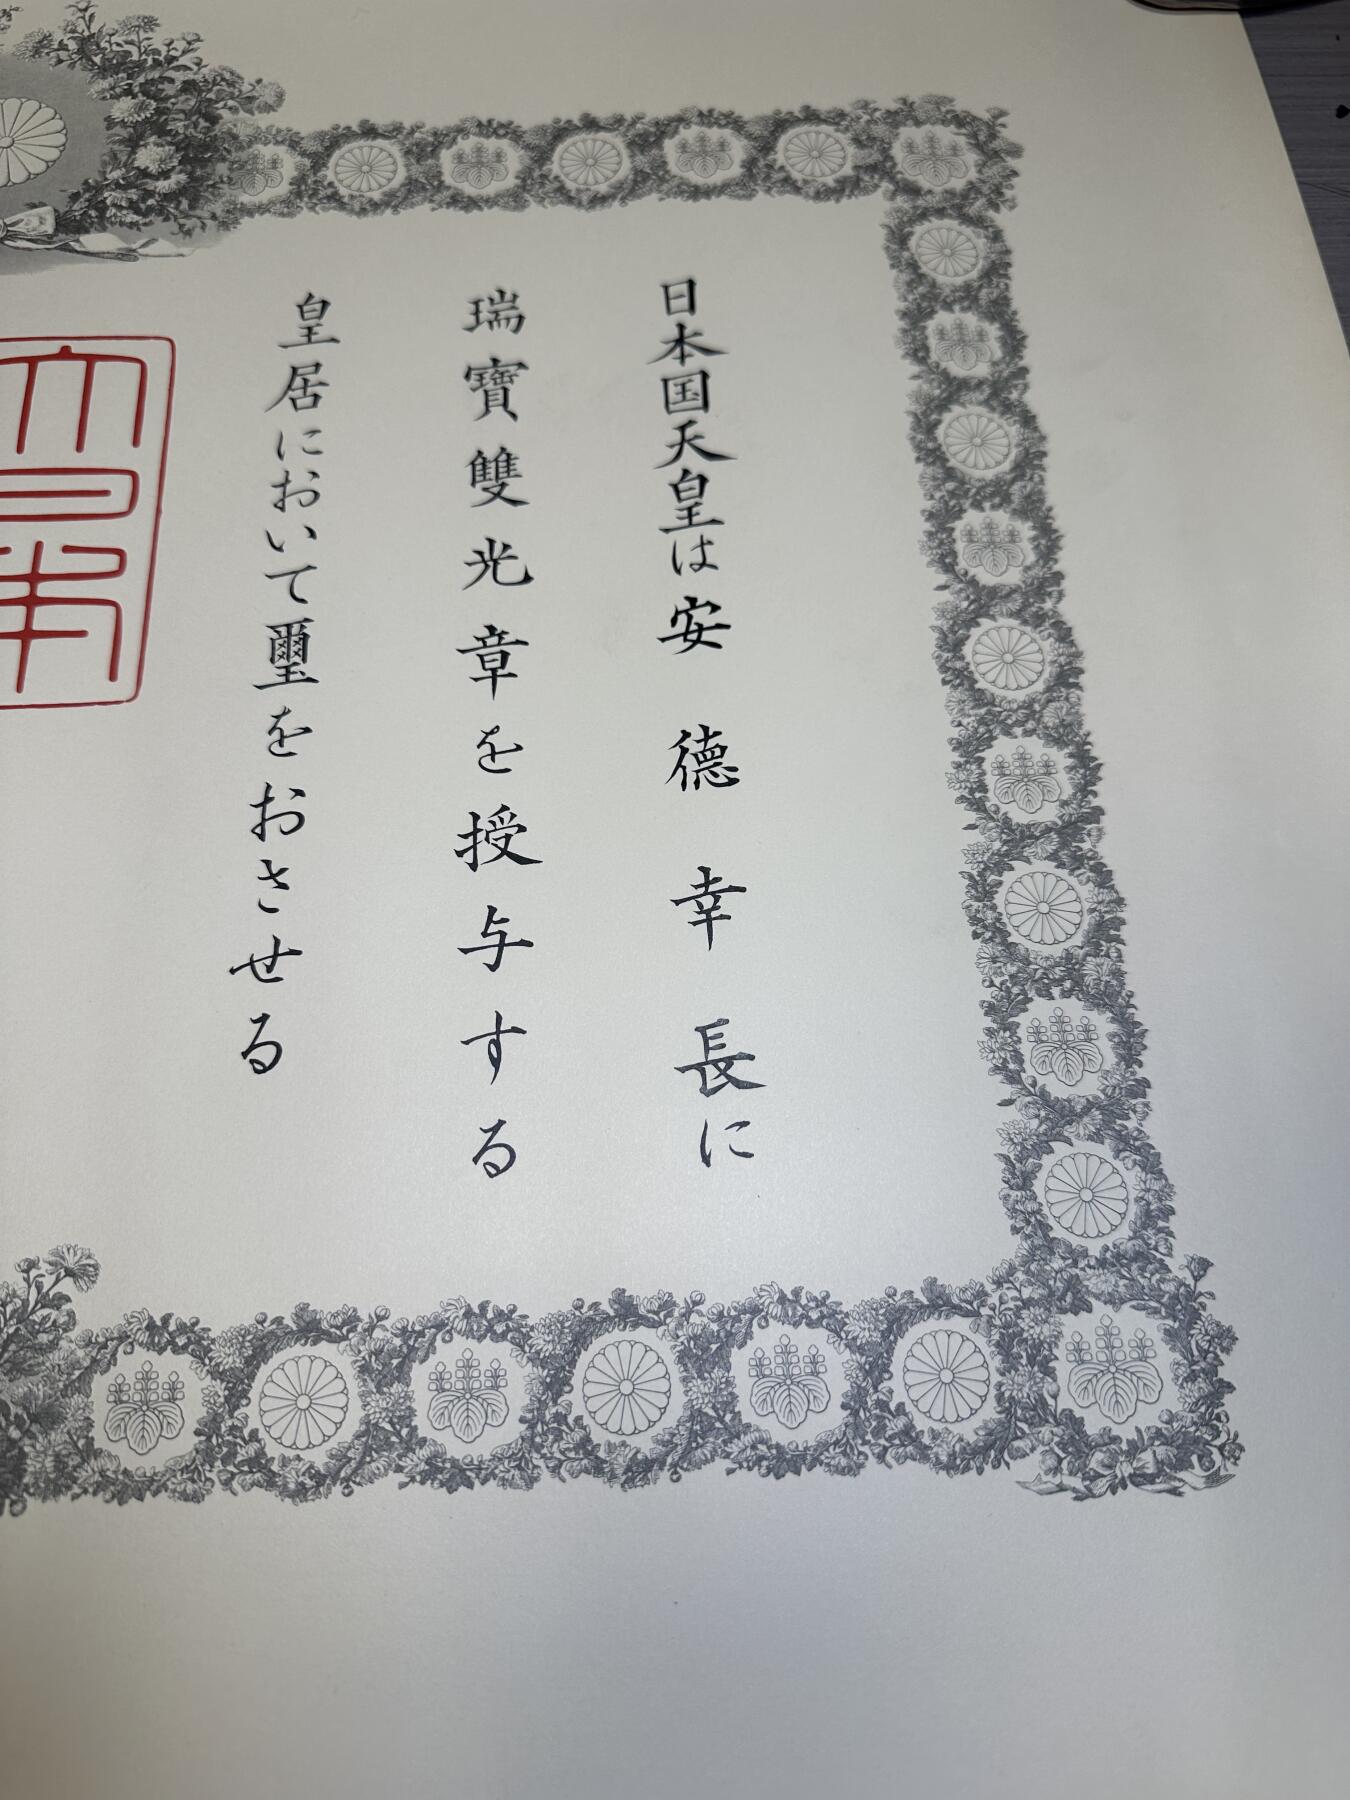 日本国天皇は安德幸長に
瑞寶雙光章を授与する
皇居において璽をおさせる